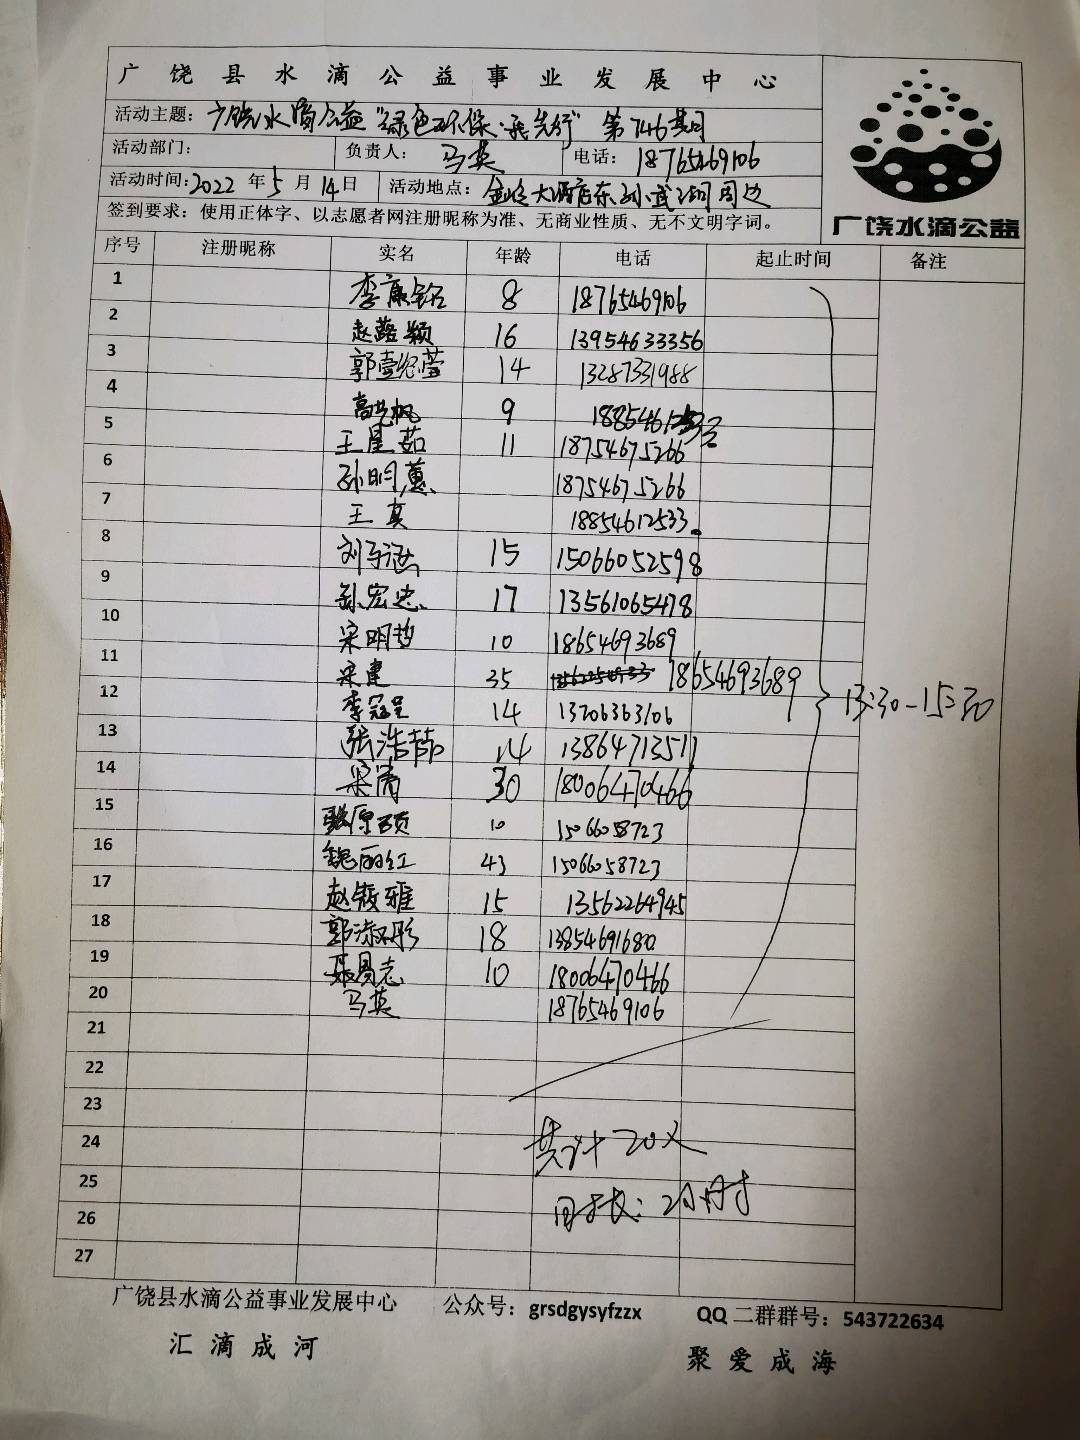 广饶县水滴公益事业发展中心
活动主题：广饶水滴公益"绿色环保·我先行" 第746期
活动部门： 负责人：马英 电话：18765469106
活动时间：2022年5月14日 活动地点：大酒店东孙武湖周边
签到要求：使用正体字、以志愿者网注册昵称为准、无商业性质、无不文明字词。
广饶水滴公益
序号 注册昵称 实名 年龄 电话 起止时间 备注
1 李康铭 8 18765469106
2 赵蕗颖 16 13954633356
3 郭壹萱 14 13287331988
4 高艺帆 9 1885461
5 王星茹 11 18754675266
6 孙明蕙 18754675266
7 王真 18854612533
8 刘子涵 15 15066052598
9 孙宏忠 17 13561065478
10 宋明哲 10 18654693689
11 宋建 35 18654693689
12 李冠呈 14 13206363106
13 张浩 14 13864713511
14 梁霄 30 18006470466
15 10 1506658723
16 魏丽红 43 15066058723
17 赵筱雅 15 13562264945
18 郭淑彤 18 13854691680
19 聂易志 10 18006470466
20 马英 18765469106
13:30-15:30
21
22
23
24 共计20人
25 时长：2小时
26
27
广饶县水滴公益事业发展中心 公众号：grsdgysyfzzx QQ二群群号：543722634
汇滴成河 聚爱成海